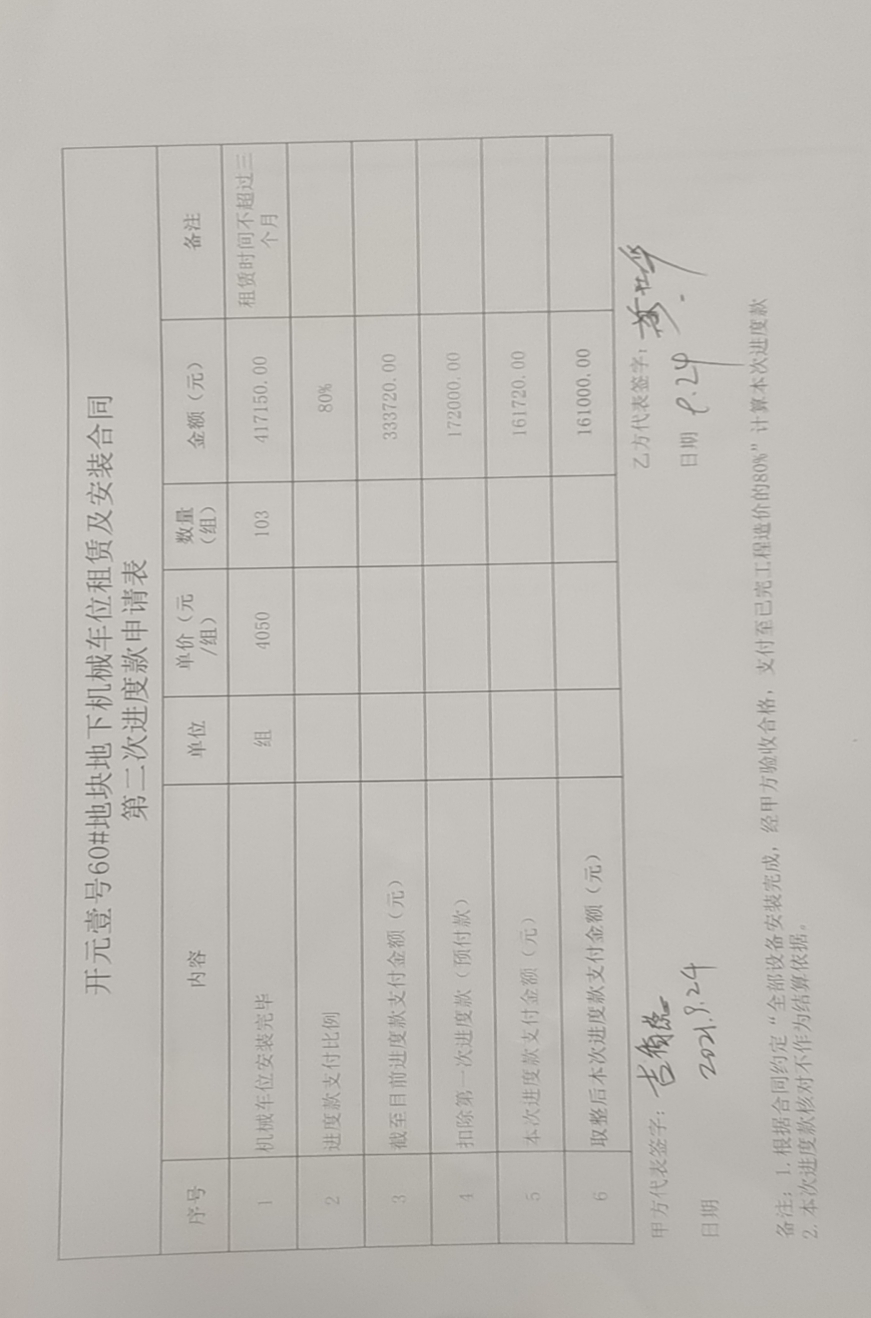 开元壹号60#地块地下机械车位租赁及安装合同
第二次进度款申请表
序号 内容 单位 单价（元/组） 数量（组） 金额（元） 备注
1 机械车位安装完毕 组 4050 103 417150.00 租赁时间不超过三个月
2 进度款支付比例 80%
3 截至目前进度款支付金额（元） 333720.00
4 扣除第一次进度款（预付款） 172000.00
5 本次进度款支付金额（元） 161720.00
6 取整后本次进度款支付金额（元） 161000.00
甲方代表签字： 乙方代表签字：
日期 2021.9.24 日期 9.24
备注：1.根据合同约定“全部设备安装完成，经甲方验收合格，支付至已完工程造价的80%”计算本次进度款
2.本次进度款核对不作为结算依据。